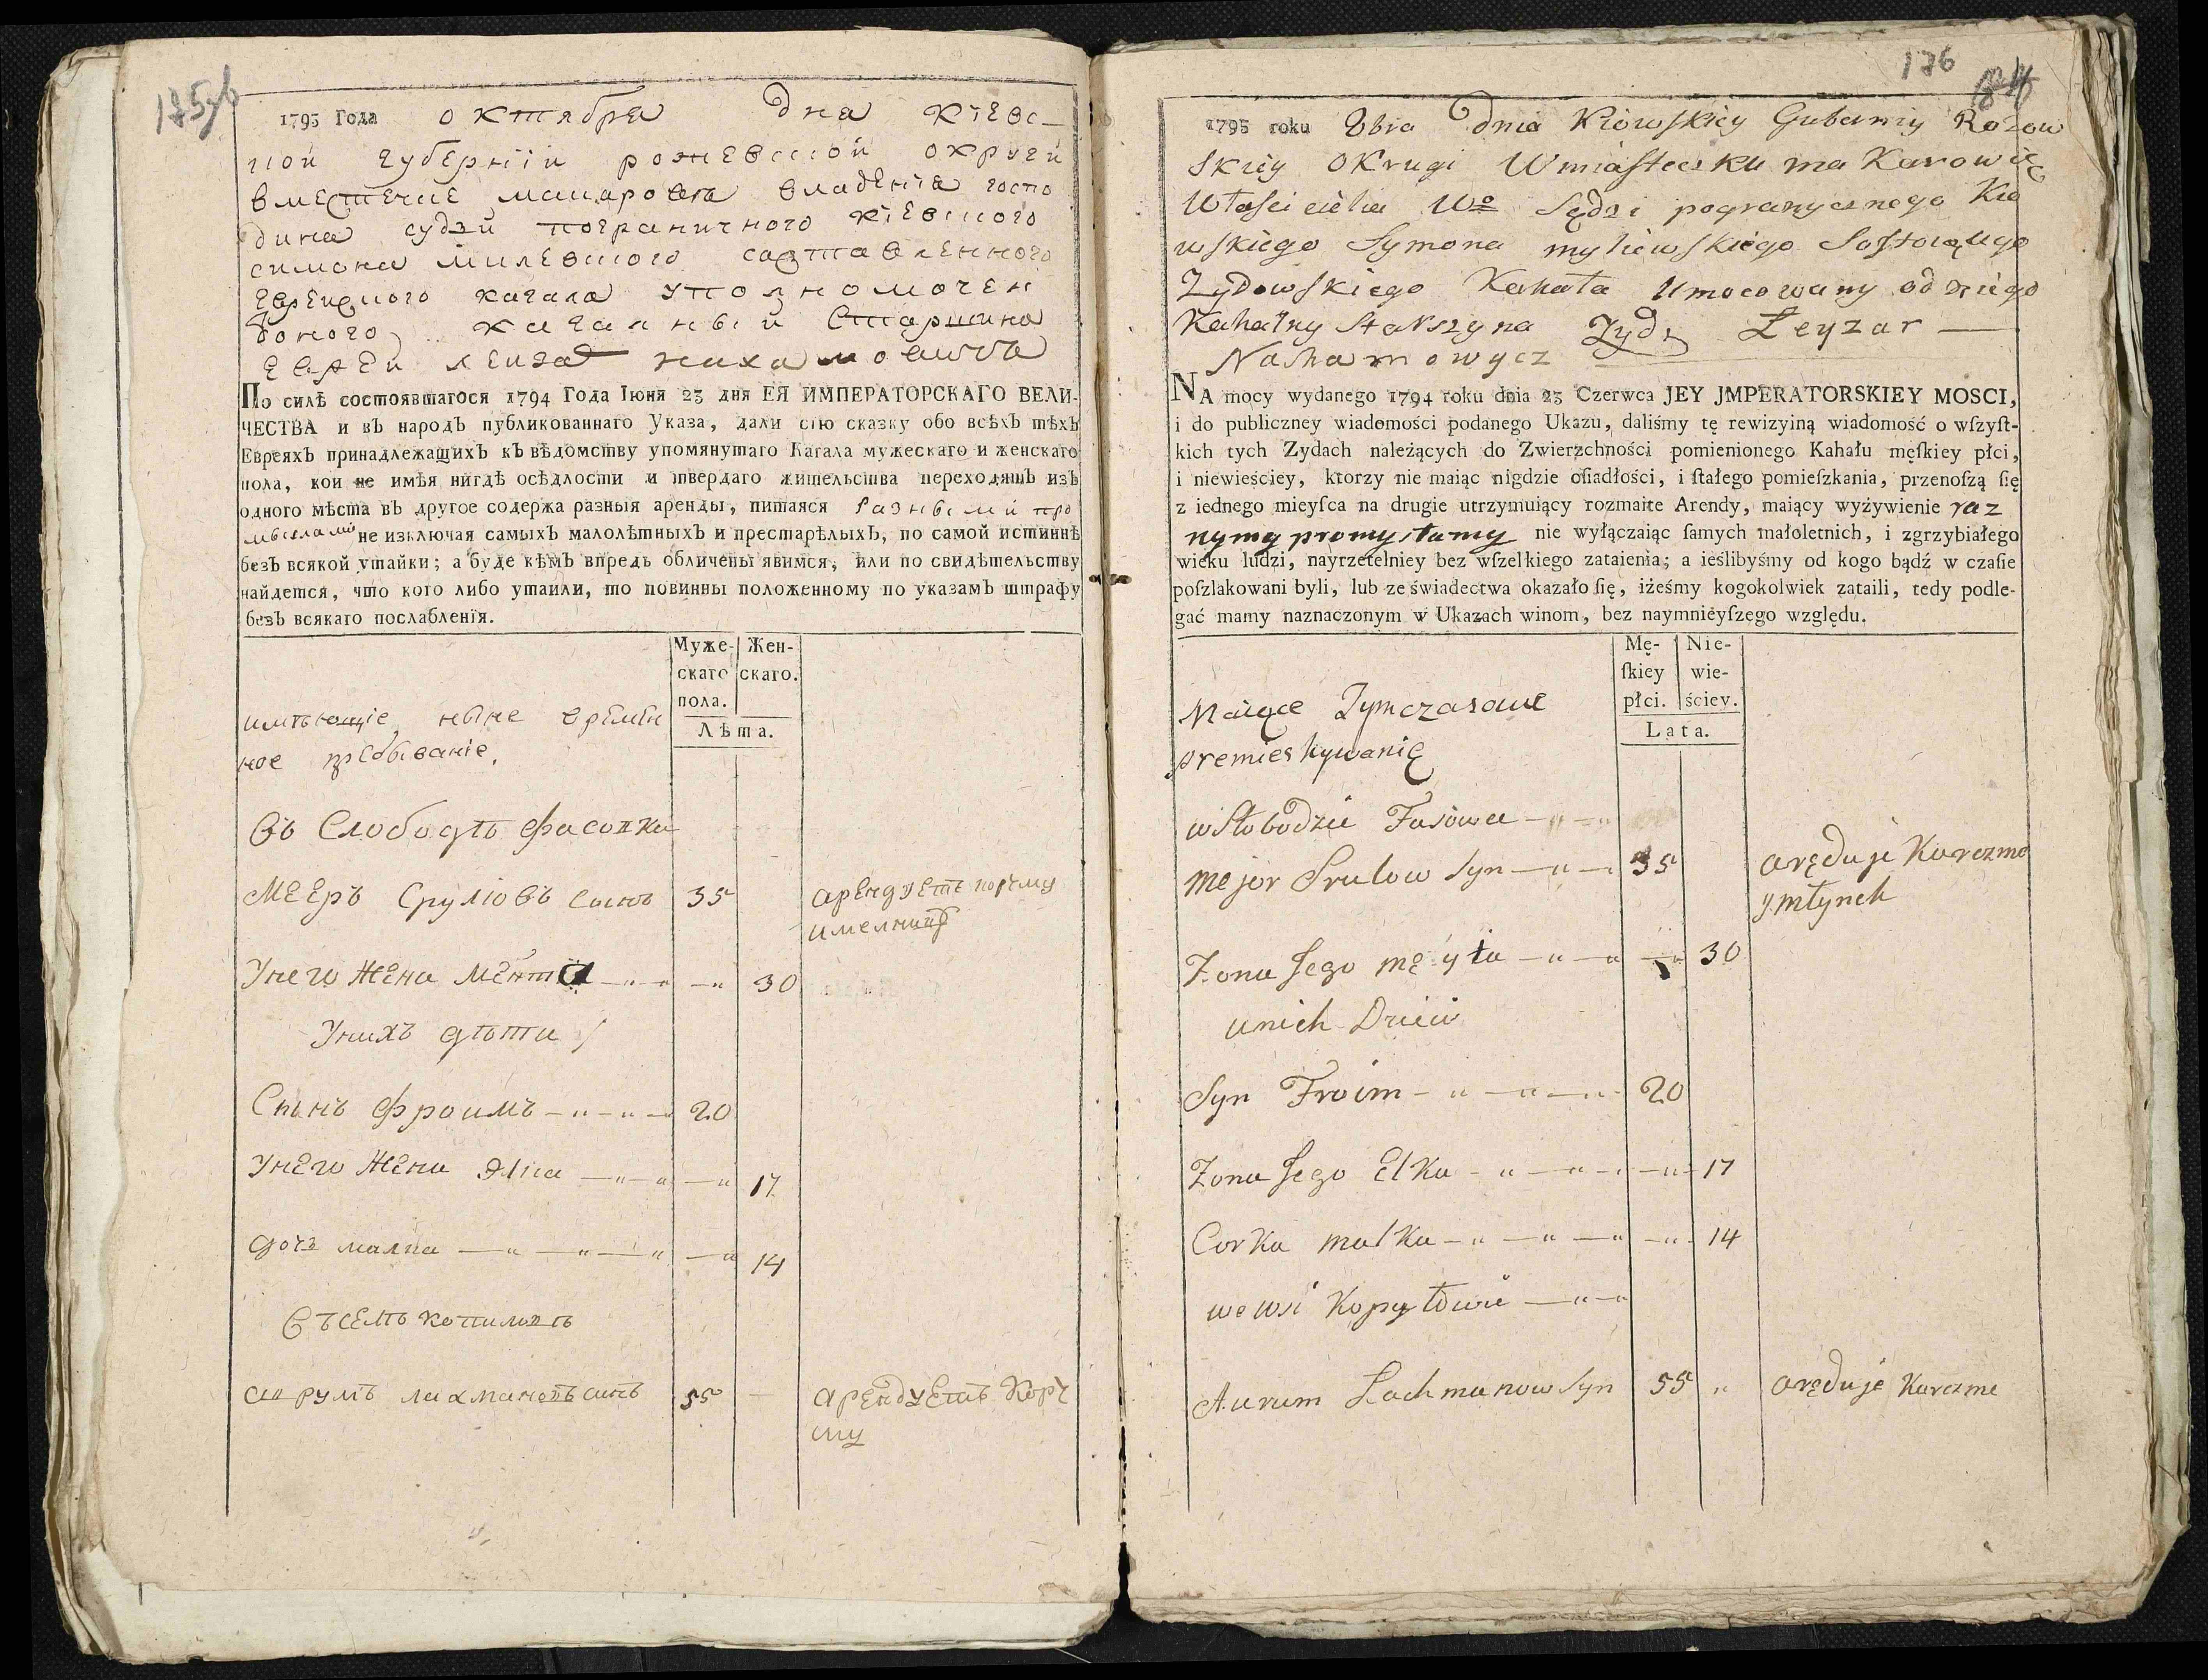 1795 Года октября дна Кіевс–
кой губернїи рожевской округи
вместечке макарове владенїа госпо
дина судзи пограничного кїевского
симона милевского составленного
еврейского кагала уполномочен
каганный Старшина
еврей лейзар нахамовичъ
По силѣ состоявшагося 1794 Года Іюня 23 дня ЕЯ ИМПЕРАТОРСКАГО ВЕЛИ-
ЧЕСТВА и въ народъ публикованнаго Указа, дали сію сказку обо всѣхъ тѣхъ
Евреяхъ принадлежащихъ къ вѣдомству упомянутаго Кагала мужескаго и женскаго
пола, кои не имѣя нигдѣ осѣдлости и твердаго жительства переходятъ изъ
одного мѣста въ другое содержа разныя аренды, питаяся разными про
мыслами не изключая самыхъ малолѣтныхъ и престарѣлыхъ, по самой истиннѣ
безъ всякой утайки; а буде кѣмъ впредь обличены явимся, или по свидѣтельству
найдется, что кого либо утаили, то повинны положенному по указамъ штрафу
безъ всякаго послабленія.
Муже-
скаго
пола.
Жен-
скаго.
Лѣта.
имѣющіе ныне времен
ное пребываніе,
въ Слободѣ Фасовки
Мееръ Сруліовъ сынъ 35 арендуетъ корчму
имелникъ
Унего жена Мента — „ — „ — „ 30
Унихъ дѣти
Сынъ Фроимъ — „ — „ — 20
Унего жена Элка — „ — „ — „ 17
дочъ малка — „ — „ — „ — „ 14
Въселѣ копиловѣ
аврумъ лахмановъ синъ 55 — арендуетъ Корч
му
176
1795 roku 8bra Dnia Kiowskiey Guberniy Rozow
skiey OKrugi Wmiasteczku maKarowie
Własciciela Wo Sędzi pogranycznego Kio
wskiego Symona myliewskiego
Zydowskiego Kahała Umocowany od niego
Kahalny Starszyna Zyd Leyzar —
Nachamowycz
NA mocy wydanego 1794 roku dnia 23 Czerwca JEY JMPERATORSKIEY MOSCI,
i do publiczney wiadomości podanego Ukazu, daliśmy tę rewizyiną wiadomość o wſzyſt-
kich tych Zydach należących do Zwierzchności pomienionego Kahału męſkiey płci,
i niewieściey, ktorzy nie maiąc nigdzie oſiadłości, i ſtałego pomieſzkania, przenoſzą ſię
z iednego mieyſca na drugie utrzymuiący rozmaite Arendy, maiący wyżywienie raz
nymy promysłamy nie wyłączaiąc ſamych małoletnich, i zgrzybiałego
wieku ludzi, nayrzetelniey bez wſzelkiego zataienia; a ieślibyśmy od kogo bądź w czaſie
poſzlakowani byli, lub ze świadectwa okazało ſię, iżeśmy kogokolwiek zataili, tedy podle-
gać mamy naznaczonym w Ukazach winom, bez naymnieyſzego względu.
Mę-
ſkiey
płci.
Nie-
wie-
ściey.
Lata.
Maiące Tymczasowe
premieskywanię
wSłobodzie Fasowce — „ — „
mejor Srulow Syn — „ — 35 aręduje Karczme
y młynek
Zona Jego męyta — „ — „ — „ 30
unich Dzieci
Syn Froim — „ — „ — „ 20
Zona Jego Elka — „ — „ — „ 17
Corka malka — „ — „ — „ — „ 14
wewsi Kopyłowie — „ — „
Awrum Lachmanow Syn 55 „ aręduje Karczme